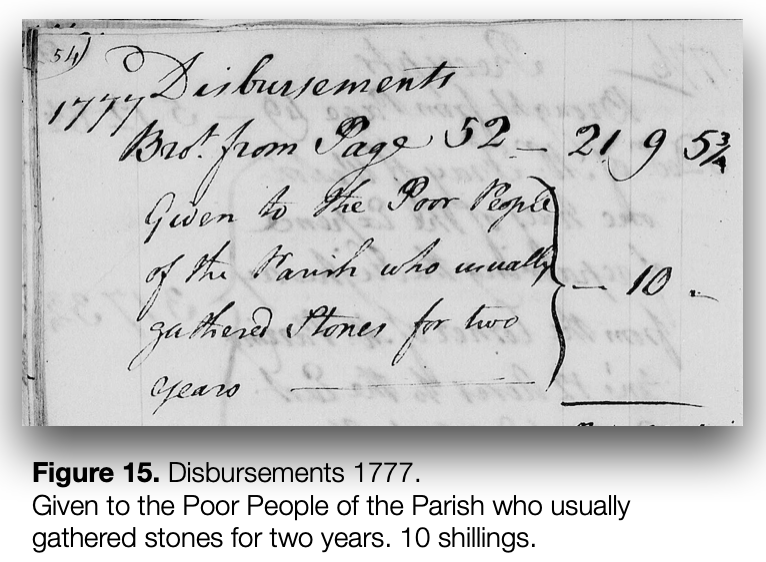 54)
Disbursements
1777
Bro.t from Page 52 — 21 9 5¾
Given to the Poor People
of the Parish who usually
— 10 -
gathered Stones for two
years
Figure 15. Disbursements 1777.
Given to the Poor People of the Parish who usually
gathered stones for two years. 10 shillings.